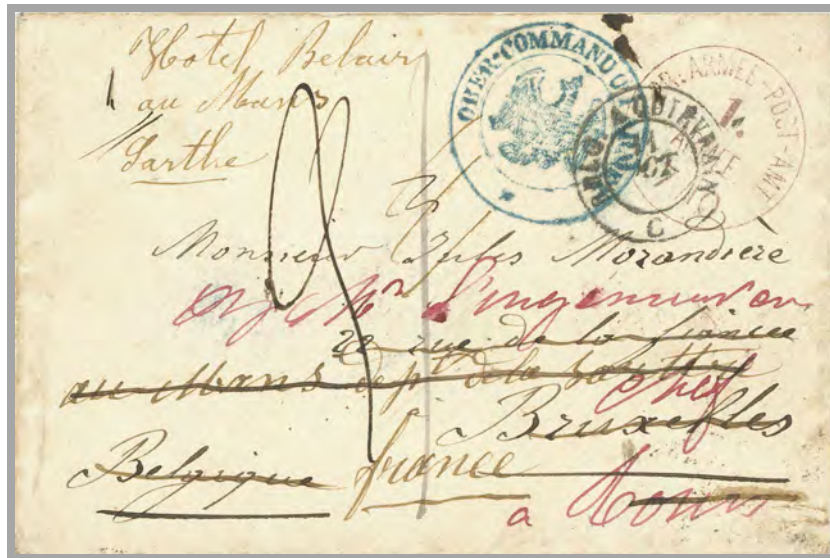 Hotel Belair
au Mans
Sarthe
OBER-COMMANDO
ARMEE-POST-AMT
1.
C
Monsieur Jules Morandière
Mr L'ingénieur en
22 rue de la france
au Mans dept de la Sarthe
chef
à
Bruxelles
Belgique
france
à Tours